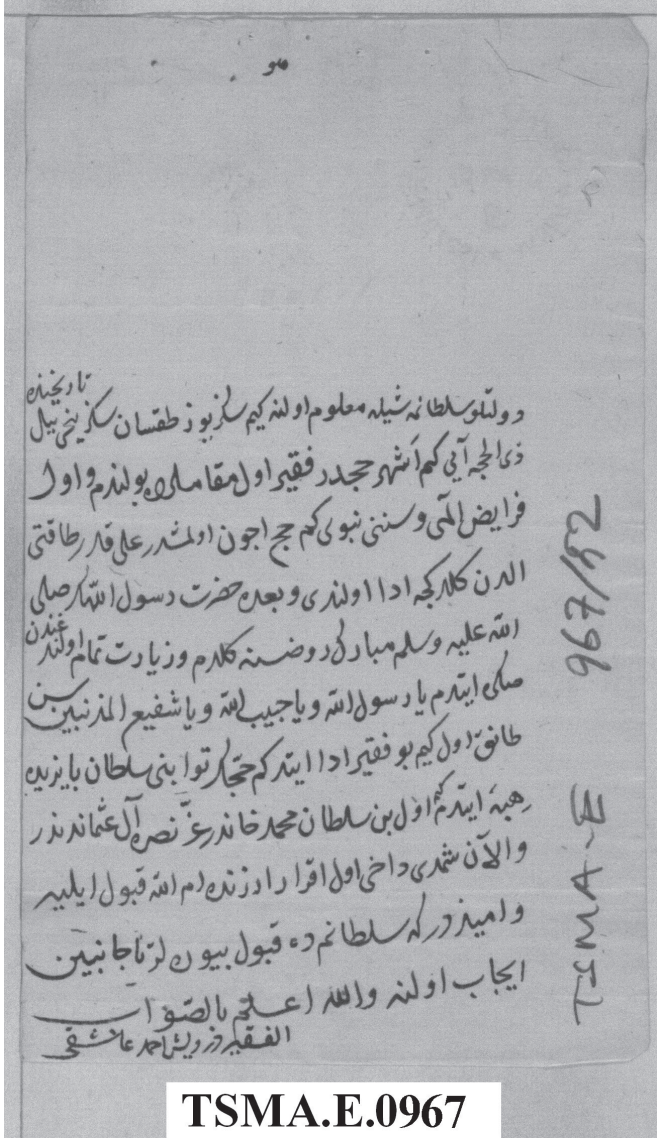 هو
دولتلو سلطانمه شیله معلوم اولنه کیم سکز یوز طقسان سکزینجی ییل تاریخنده
ذی الحجه آیی کم اشهر حجدر فقیر اول مقاملره بولندم و اول
فرایض الهی و سنن نبوی کم حج اچون اولمشدر علی قدر طاقتی
الدن کلدکجه ادا اولندی و بعده حضرت رسول اللهک صلی
الله علیه وسلم مبارک روضسنه کلدم و زیارت تمام اولندغندن
صکره ایتدم یا رسول الله و یا حبیب الله و یا شفیع المذنبین سن
طانق اول کیم بو فقیر ادا ایتدکم حجک ثوابنی سلطان بایزیده
هبه ایتدم کیم اول بن سلطان محمد خاندر عز نصره آل عثماندندر
والآن شمدی داخی اول اقرار اوزنده ام الله قبول ایلیه
و امیذدر که سلطانم ده قبول بیوره لر تا جانبین
ایجاب اولنه والله اعلم بالصواب
الفقیر درویش احمد عاشقی
967/52
TSMA-E
TSMA.E.0967